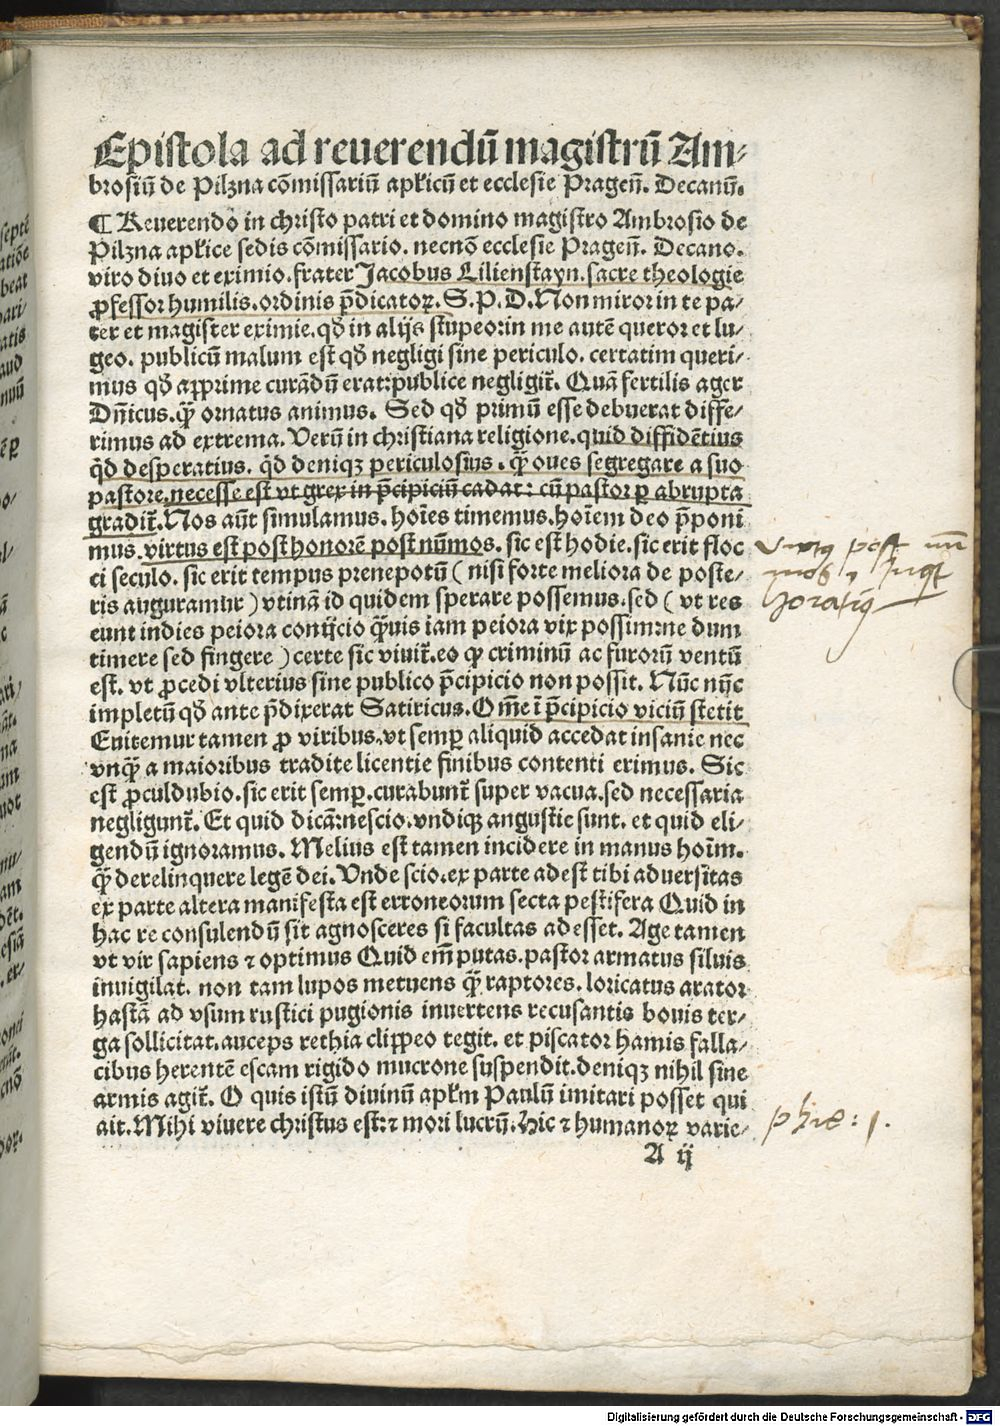 Epistola ad reuerendū magistrū Am⸗
brosiū de Pilzna cōmissariū apl̄icū et ecclesie Pragen̄. Decanū.
¶ Reuerendo in christo patri et domino magistro Ambrosio de
Pilzna apl̄ice sedis cōmissario. necnō ecclesie Pragen̄. Decano.
viro diuo et eximio. frater Jacobus Lilienstayn. sacre theologie
ꝓfessor humilis. ordinis p̄dicatoꝝ. S. P. D. Non miror in te pa⸗
ter et magister eximie. qđ in alijs stupeo: in me autē queror et lu⸗
geo. publicū malum est qđ negligi sine periculo. certatim queri⸗
mus qđ apprime curādū erat: publice negligit̄. Quā fertilis ager
Dn̄icus. q̄ꝫ ornatus animus. Sed qđ primū esse debuerat diffe⸗
rimus ad extrema. Verū in christiana religione. quid diffidētius
q̇d desperatius. q̇d deniqꝫ periculosius. q̄ꝫ oues segregare a suo
pastore. necesse est vt grex in p̄cipiciū cadat: cū pastor ꝑ abrupta
gradit̄. Nos aūt simulamus. hoīes timemus. hoīem deo p̄poni
mus. virtus est post honorē post nūmos. sic est hodie. sic erit floc
ci seculo. sic erit tempus prenepotū ( nisi forte meliora de poste⸗
ris auguramur ) vtinā id quidem sperare possemus. sed ( vt res
eunt indies peiora conijcio q̄ꝫuis iam peiora vix possim: ne dum
timere sed fingere ) certe sic viuit̄. eo ꝙ criminū ac furorū ventū
est. vt ꝓcedi vlterius sine publico p̄cipicio non possit. Nūc nūc
impletū qđ ante p̄dixerat Satiricus. Om̄e ī p̄cipicio viciū stetit
Enitemur tamen ꝓ viribus. vt semꝑ aliquid accedat insanie nec
vnq̄ꝫ a maioribus tradite licentie finibus contenti erimus. Sic
est ꝓculdubio. sic erit semꝑ. curabunt̄ super vacua. sed necessaria
negligunt̄. Et quid dicā: nescio. vndiqꝫ angustie sunt. et quid eli⸗
gendū ignoramus. Melius est tamen incidere in manus hoīm.
q̄ꝫ derelinquere legē dei. Vnde scio. ex parte adest tibi aduersitas
ex parte altera manifesta est erroneorum secta pestifera Quid in
hac re consulendū sit agnosceres si facultas adesset. Age tamen
vt vir sapiens ⁊ optimus Quid em̄ putas. pastor armatus siluis
inuigilat. non tam lupos metuens q̄ꝫ raptores. loricatus arator
hastā ad vsum rustici pugionis inuertens recusantis bouis ter⸗
ga sollicitat. auceps rethia clippeo tegit. et piscator hamis falla⸗
cibus herentē escam rigido mucrone suspendit. deniqꝫ nihil sine
armis agit̄. O quis istū diuinū apl̄m Paulū imitari posset qui
ait. Mihi viuere christus est: ⁊ mori lucrū. Hic ⁊ humanoꝝ varie⸗
A ij
Virtꝰ post nū
mos
horatiꝰ
phil: 1.
Digitalisierung gefördert durch die Deutsche Forschungsgemeinschaft - DFG